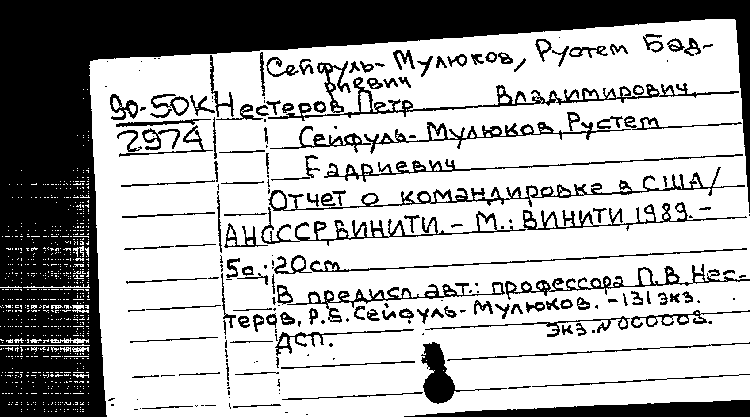 Сейфуль-Мулюков, Рустем Бад-
риевич
90-50К Нестеров, Петр Владимирович,
2974 Сейфуль-Мулюков, Рустем
Бадриевич
Отчет о командировке в США/
АН СССР, ВИНИТИ. - М.: ВИНИТИ, 1989. -
5с.; 20cm
В предисл. авт.: профессора П.В. Нес-
теров, Р.Б. Сейфуль-Мулюков. - 131 экз.
ДСП. Экз. N 000008.